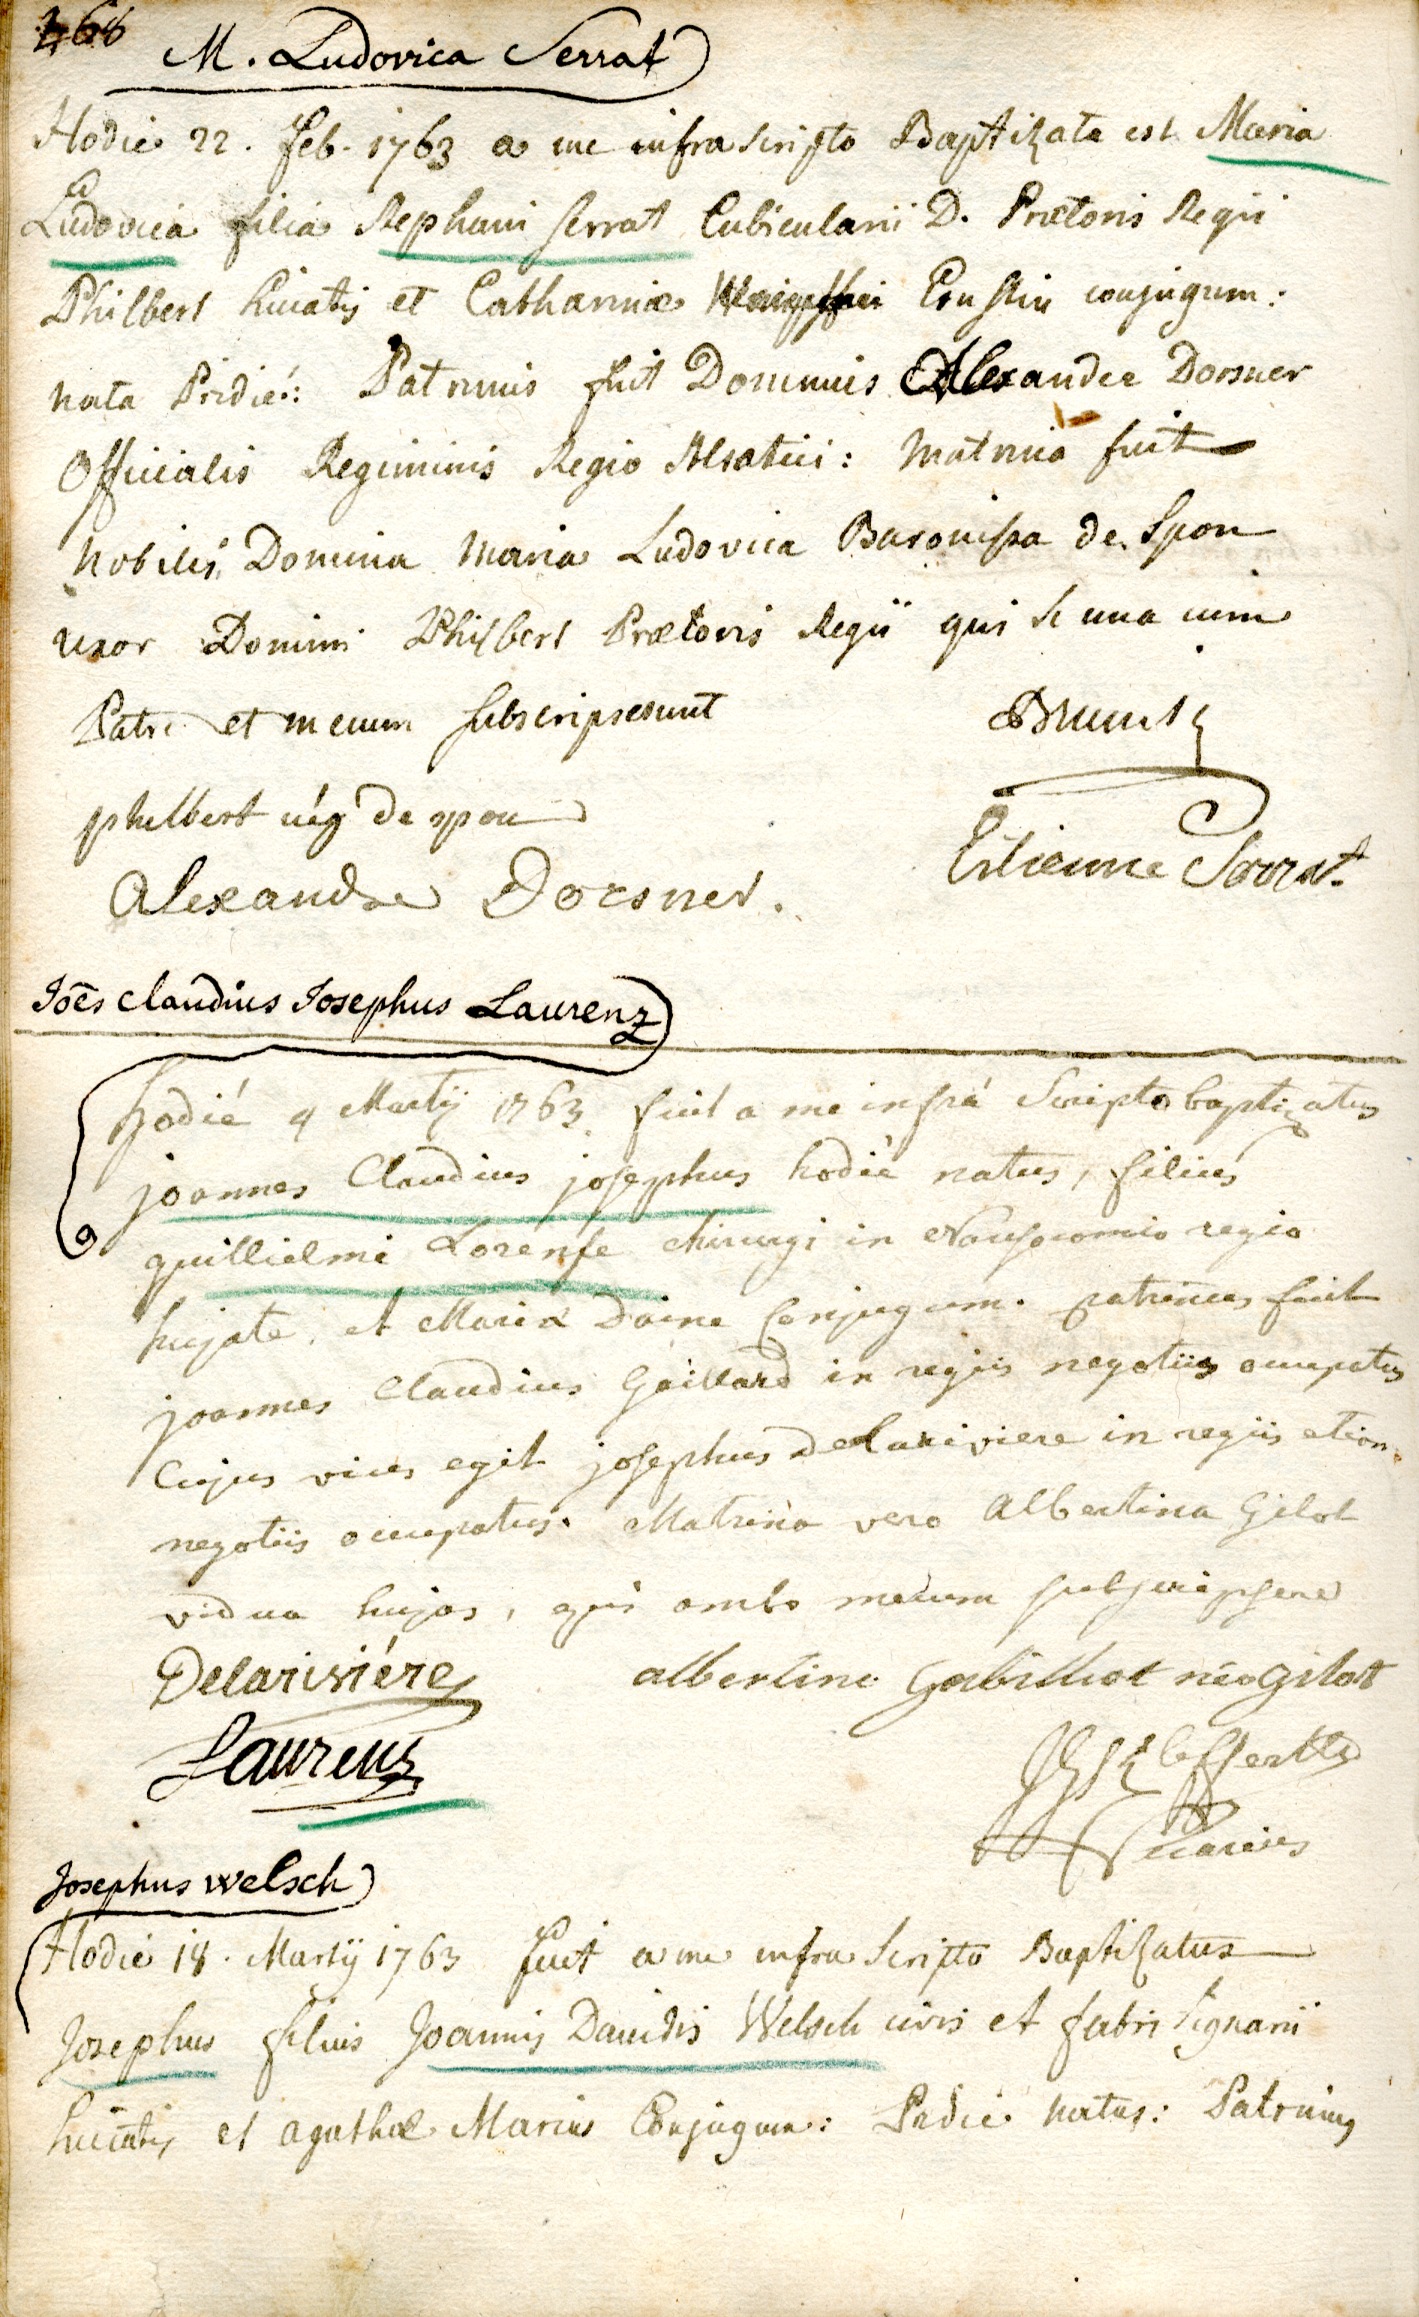 468
M. Ludovica Serrat
Hodie 22. Feb. 1763 a me infra scripto Baptizata est Maria
Ludovica filia Stephani Serrat Cubicularii D. Prætoris Regii
Philbert huiatis et Catharinæ conjugum:
nata Pridie: Patrinus fuit Dominus Alexander Dorsner
Officialis Regiminis Regio Alsatici: Matrina fuit
Nobilis Domina Maria Ludovica Baronissa de Spon
uxor Domini Philbert Prætoris Regii qui se una cum
Patre et mecum subscripserunt
philbert née de spon
Etienne Serrat.
Alexandre Dorsner.
Joēs Claudius Josephus Laurenz
hodié 9 Martij 1763 fuit a me infrá Scripto baptizatus
joannes Claudius josephus hodiè natus, filius
guillielmi Lorense chirurgi in Nosocomio regio
hujate, et Mariæ Daine Conjugum. patrinus fuit
joannes Claudius Gaillard in regiis negotiis occupatus
Cujus vices egit josephus Delariviere in regiis etiam
negotiis occupatus. Matrina vero Albertina Gilot
vidua hujas, qui ambo mecum subscripsere
Delariviére albertine née Gilot
Laurenz
Vicarius
Josephus Welsch
Hodie 18. Martij 1763 fuit a me infra scripto Baptizatus
Josephus filius Joannis Davidis Welsch civis et fabri lignarii
huiatis et Agathæ Marius Conjugum: Pridie natus: Patrinus